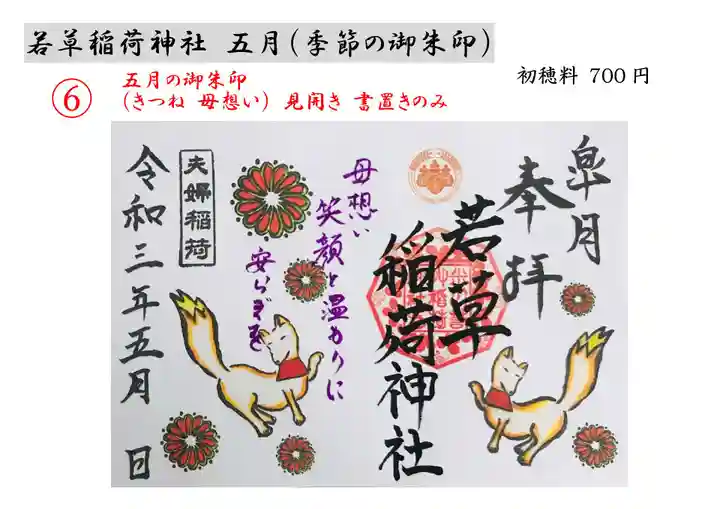 若草稲荷神社 五月(季節の御朱印)
初穂料 700円
⑥
五月の御朱印
(きつね 母想い) 見開き 書置きのみ
皐月
奉拝
若草
稲荷神社
母想い
笑顔と温もりに
安らぎを
夫婦稲荷
令和三年五月 日